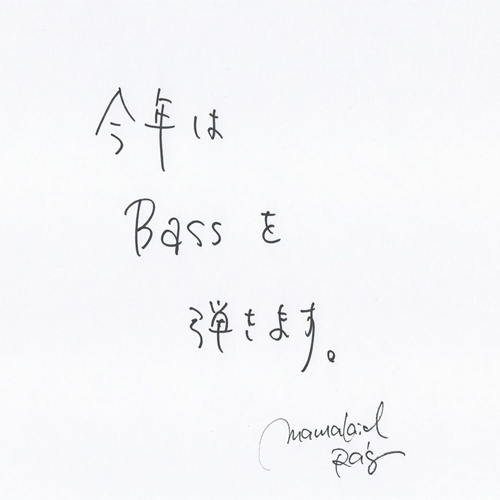 今年は
Bassを
弾きます。
mamalaid
Rag